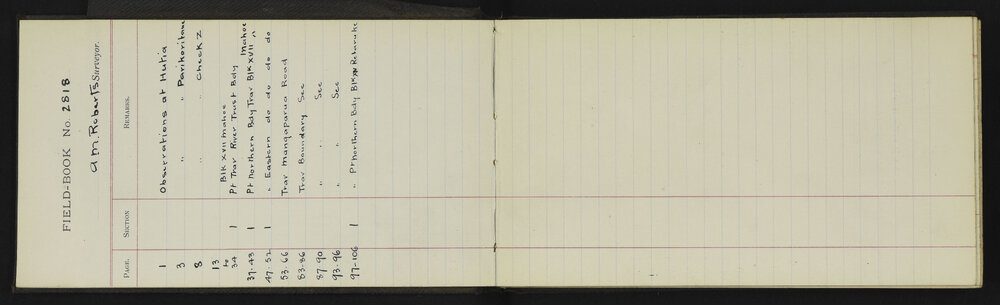 FIELD-BOOK No. 2818
A M. Roberts Surveyor.
PAGE. SECTION REMARKS.
1 Observations at Hutia
3 " " Parikoritane
8 " " Check Z
13 to 34 1 Blk XVII Mahoe Pt Trav River Trust Bdy
37-43 1 Pt Northern Bdy Trav Blk XVII Mahoe
47-52 1 " Eastern do do do do
53-66 Trav Mangaparua Road
83-86 Trav Boundary Sec
87-90 " " Sec
93-96 " " Sec
97-106 1 " Pt Northern Bdy Blk Retaruke